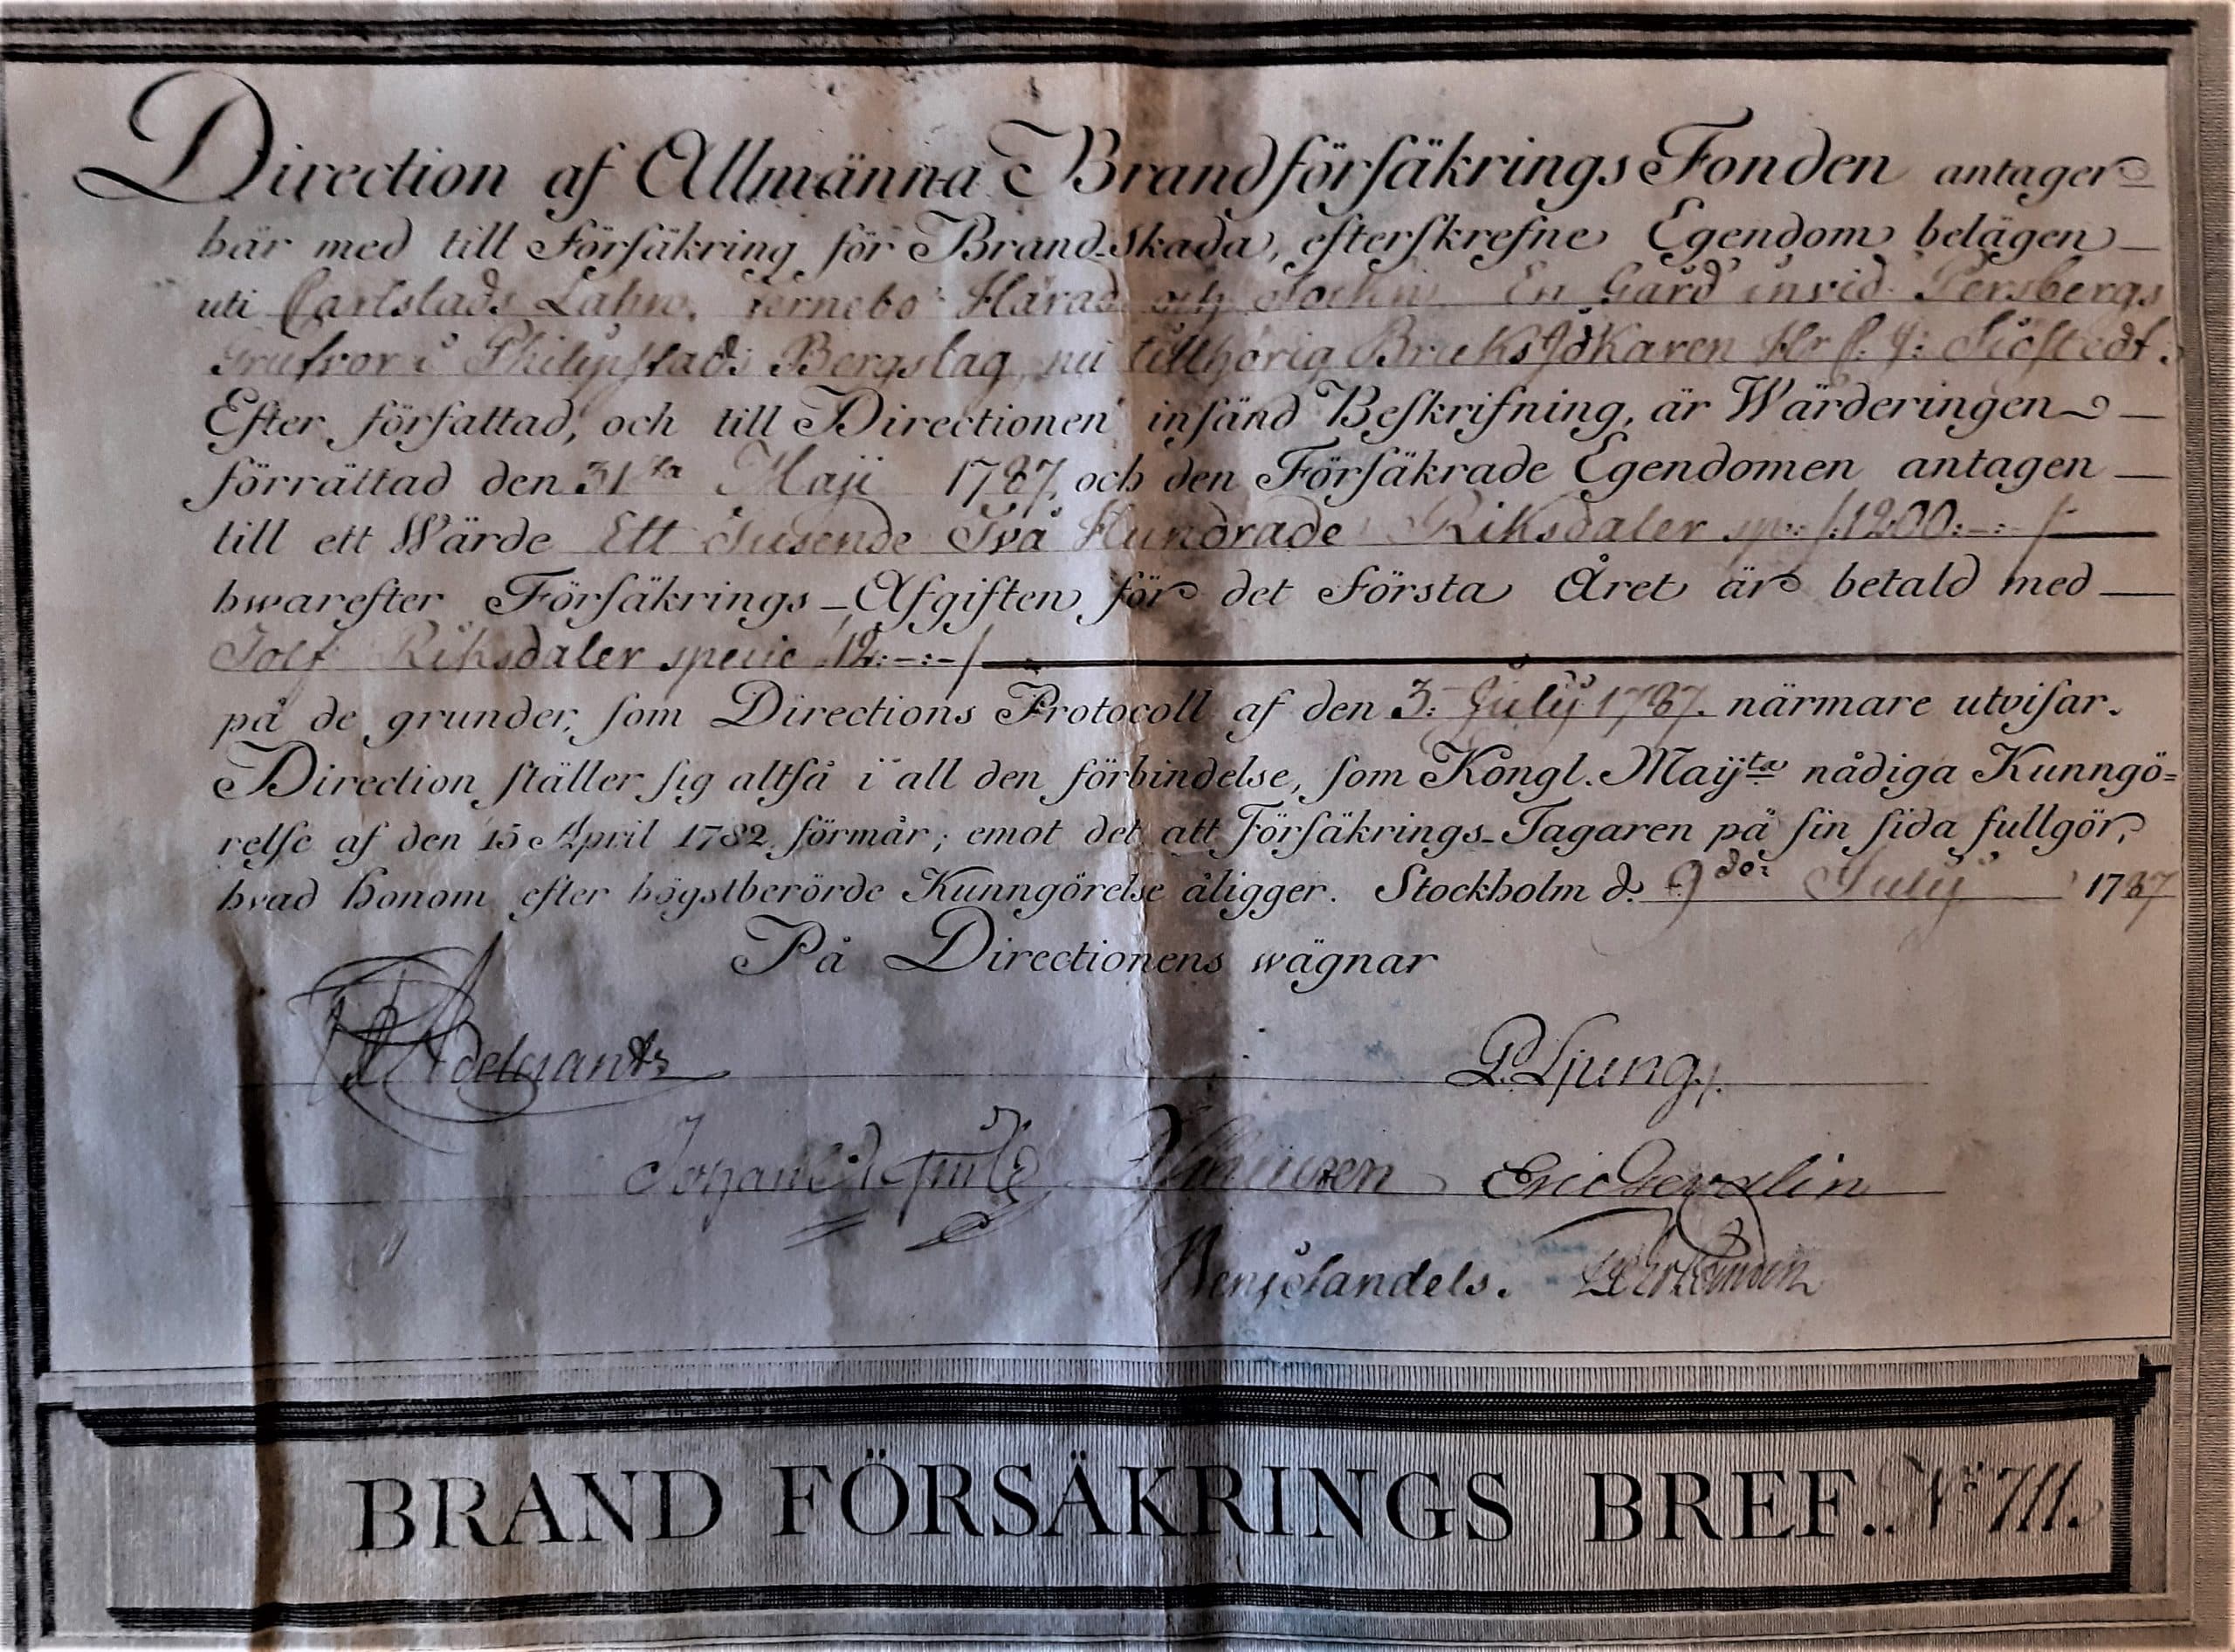 Direction af Allmänna Brandförsäkrings Fonden antager
här med till Försäkring för Brand-Skada, efterskrefne Egendom belägen
uti Carlstads Lähn, Fernebo Härad och Sochn, En Gård invid Persbergs
Grufvor i Philipstads Bergslag, nu tillhörig BruksIdkaren Hr Siöstedt.
Efter författad, och till Directionen insänd Beskrifning, är Wärderingen
förrättad den 31sta Maji 1787, och den Försäkrade Egendomen antagen
till ett Wärde Ett Tusende Två Hundrade Riksdaler sp:/:1200:-:-/
hwarefter Försäkrings-Afgiften för det Första Året är betald med
Tolf Riksdaler specie 12:-:-/
på de grunder, som Directions Protocoll af den 3: July 1787. närmare utvisar.
Direction ställer sig altså i all den förbindelse, som Kongl. Maijts nådiga Kunngö=
relse af den 15 April 1782 förmår; emot det att Försäkrings-Tagaren på sin sida fullgör,
hvad honom efter högstberörde Kunngörelse åligger. Stockholm d. 9de: July 1787
På Directionens wägnar
Adelcrantz
P. Ljung
Eric
BRAND FÖRSÄKRINGS BREF. No 711.